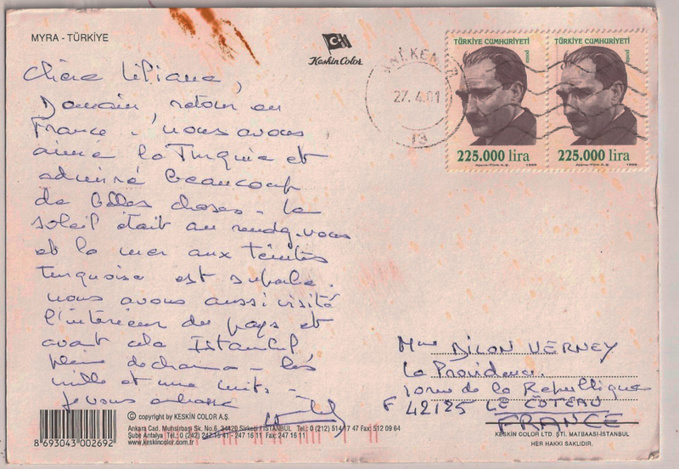 MYRA - TÜRKİYE
Keskin Color
27.4.01
13
TÜRKİYE CUMHURİYETİ
225.000 lira
TÜRKİYE CUMHURİYETİ
225.000 lira
Chère Liliane,
Demain retour en
France. Nous avons
aimé la Turquie et
admiré beaucoup
de belles choses - Le
soleil était au rendez-vous
et la mer aux teintes
turquoise est superbe.
nous avons aussi visité
l'intérieur du pays et
avant cela Istanbul
pleine de charme - les
mille et une nuits -
je vous embrasse
Mme DILON VERNEY
La Providence
de la République
F 42125 LE COTEAU
FRANCE
© copyright by KESKİN COLOR A.Ş.
Ankara Cad. No.6, 34420 Sirkeci İSTANBUL Tel.: 0 (212) 514 17 47 Fax: 512 09 64
Şube Antalya Tel.: 0 (242) 247 15 41 - 247 16 11 Fax: 247 16 11
www.keskincolor.com.tr
8 693043 002692
KESKİN COLOR LTD. ŞTİ. MATBAASI-İSTANBUL
HER HAKKI SAKLIDIR.